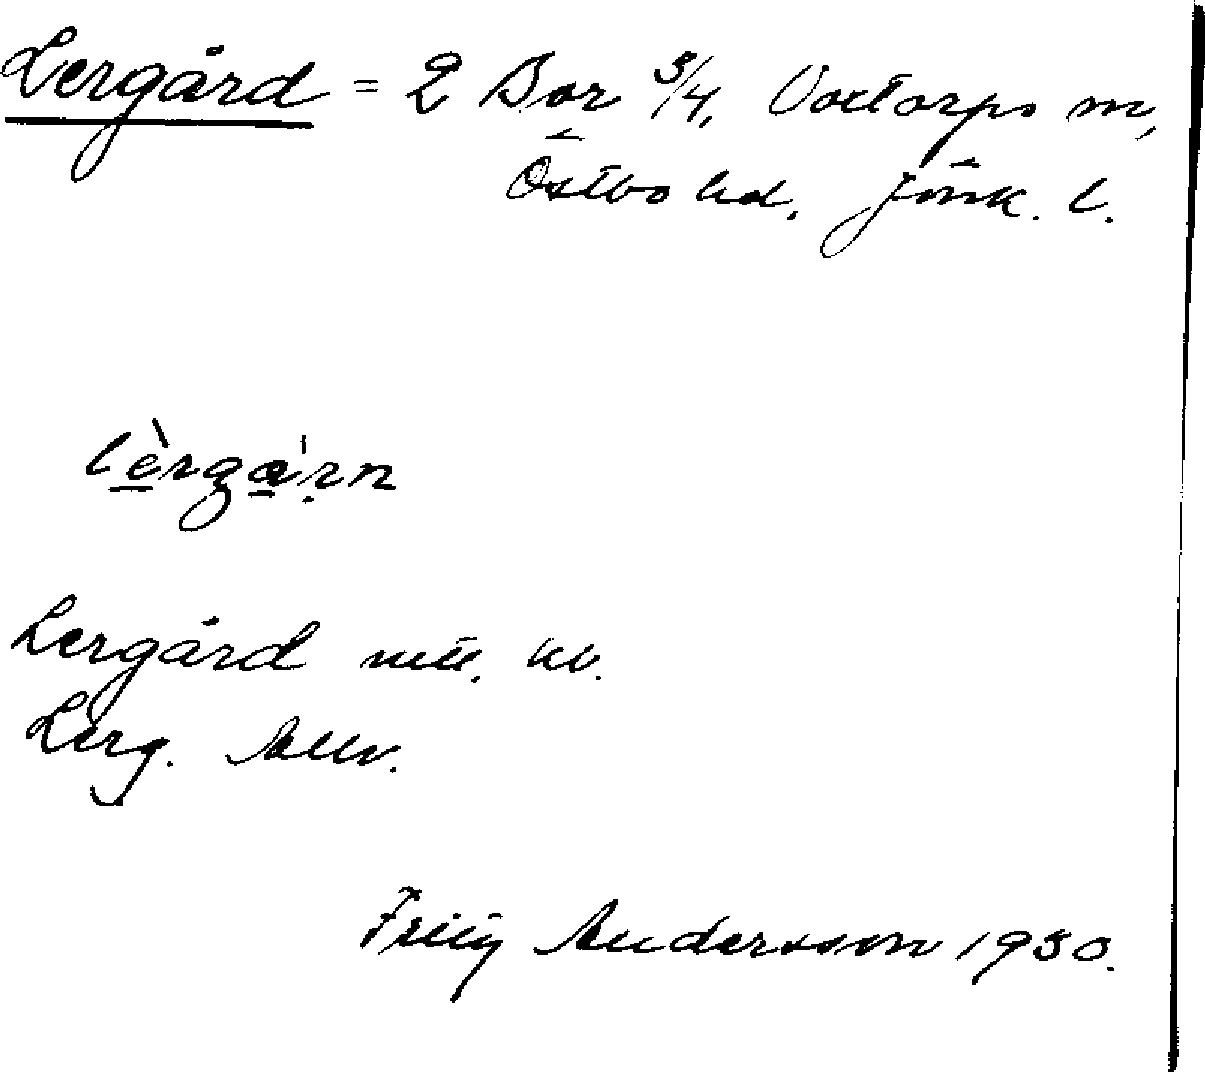 Lergård = 2 Bor 3/4, Voxtorps sn,
Östbo hd, Jönk. l.
lèrgá'rn
Lergård
Lerg.
Andersson 1930.